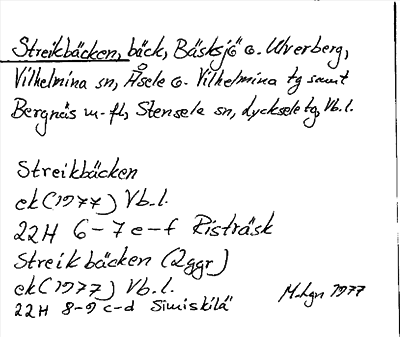 Streikbäcken, bäck, Bäsksjö o. Ulverberg,
Vilhelmina sn, Åsele o. Vilhelmina tg samt
Bergnäs m-fl, Stensele sn, Lycksele tg, Vb.l.
Streikbäcken
ek (1977) Vb.l.
22H 6-7 e-f Risträsk
Streikbäcken (2ggr)
ek (1977) Vb.l.
22H 8-9 c-d Simiskilä
1977